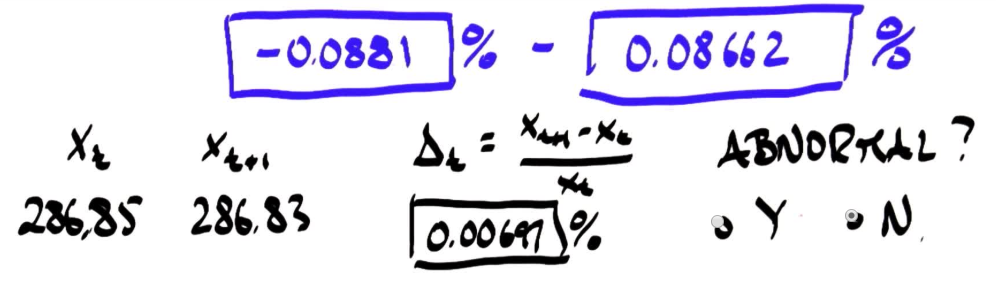 -0.0881 % - 0.08662 %
Xt Xt+1 Δt = Xt+1 - Xt / Xt ABNORMAL ?
286.85 286.83 0.00697 % Y N